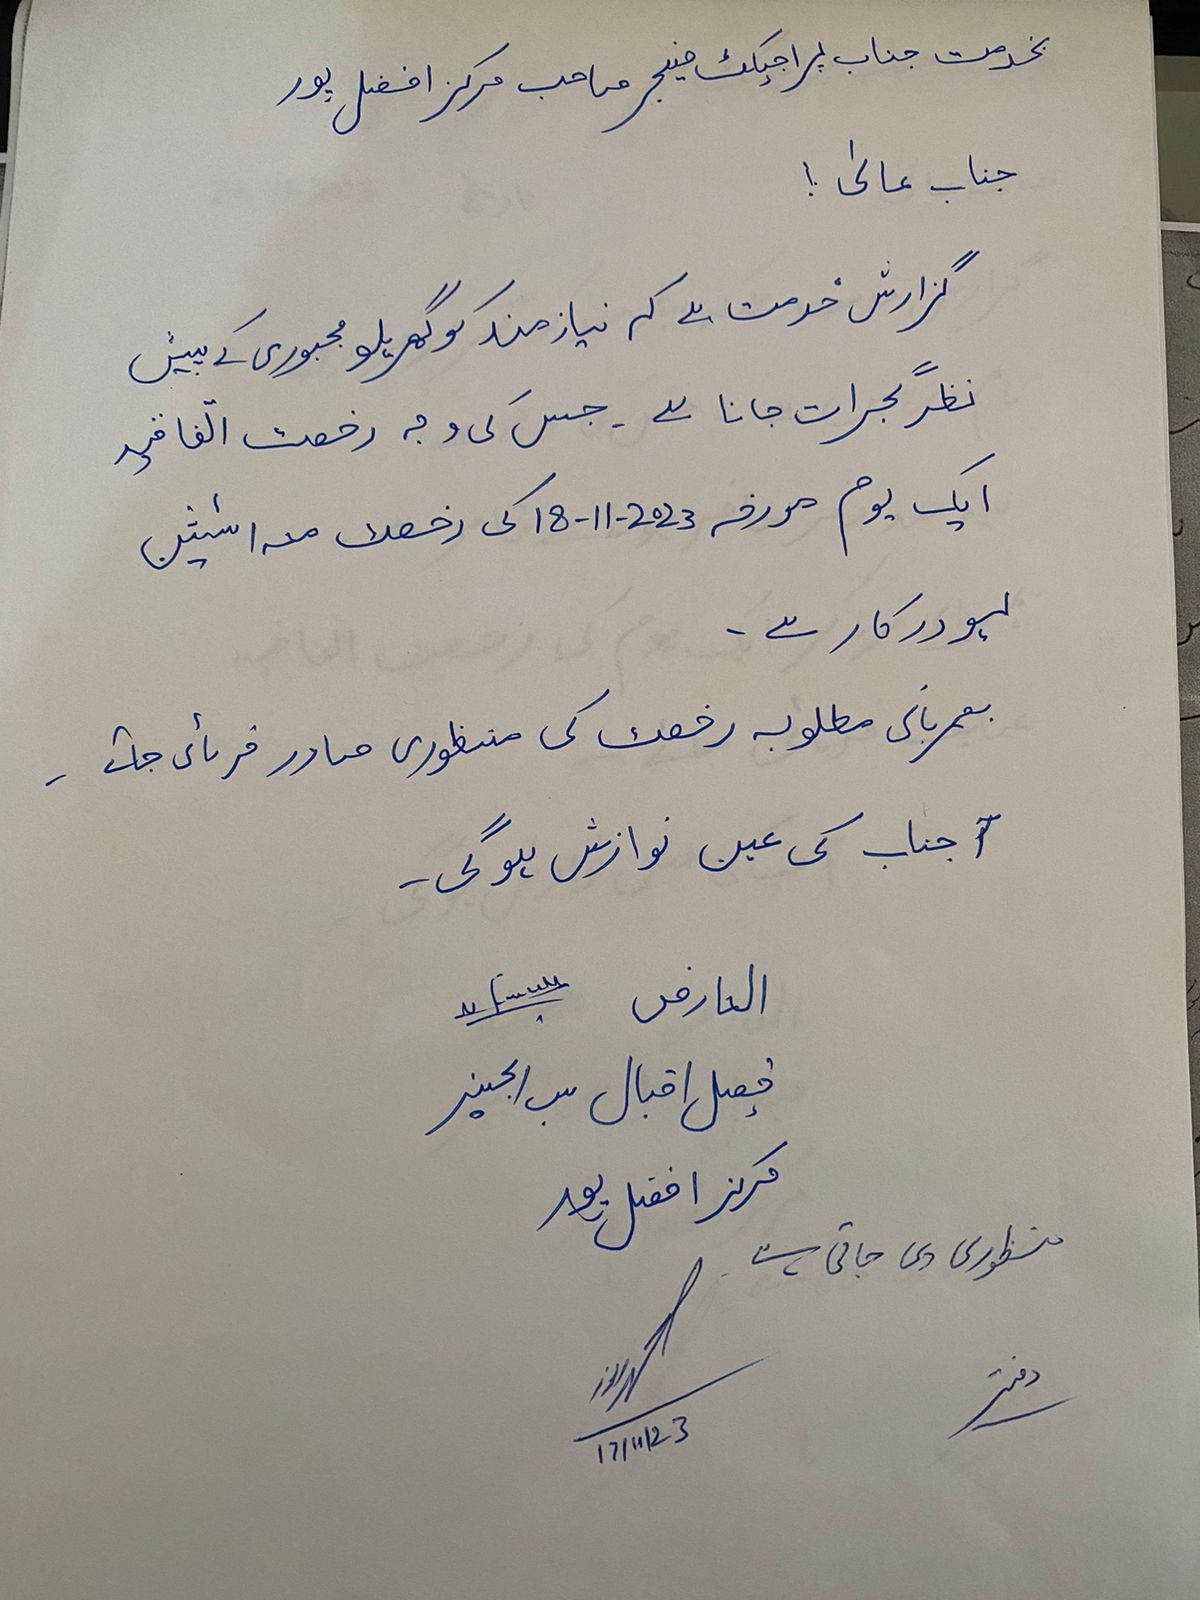 بخدمت جناب پراجیکٹ مینیجر صاحب مرکز افضل پور
جناب عالیٰ !
گزارش خدمت ہے کہ نیازمند کو گھریلو مجبوری کے پیش
نظر گجرات جانا ہے ۔ جس کی وجہ رخصت اتفاقیہ
ایک یوم مورخہ 18-11-2023 کی رخصت معہ اسٹیشن
لیو درکار ہے ۔
بمہربانی مطلوبہ رخصت کی منظوری صادر فرمائی جائے ۔
آنجناب کی عین نوازش ہوگی ۔
العارض
فیصل اقبال سب انجینئر
مرکز افضل پور
منظوری دی جاتی ہے ۔
دفتر
17/11/23